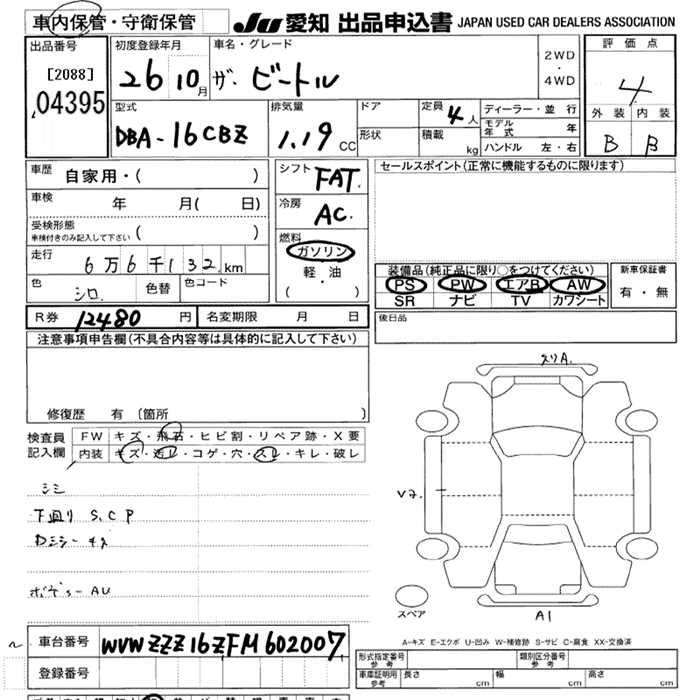 車内保管・守衛保管
JU 愛知 出品申込書 JAPAN USED CAR DEALERS ASSOCIATION
出品番号
[2088]
04395
初度登録年月
26 10月
車名・グレード
ザ・ビートル
2WD
・
4WD
評価点
4
外装 内装
B B
型式
DBA-16CBZ
排気量
1.19 CC
ドア
形状
定員 4人
積載 kg
ディーラー・並行
モデル年式 年
ハンドル 左・右
車歴 自家用・( )
車検 年 月( 日)
受検形態
車検付きのみ記入して下さい ( )
走行
6万6千132km
色 シロ
色替
色コード
シフト FAT.
冷房 AC.
燃料
ガソリン
軽・油
( ・ )
セールスポイント(正常に機能するものに限ります)
装備品(純正品に限り○をつけてください)
PS PW エアB AW
SR ナビ TV カワシート
新車保証書
有・無
R券 12480 円
名変期限 月 日
後日品
注意事項申告欄(不具合内容等は具体的に記入して下さい)
修復歴 有 (箇所 )
検査員記入欄
FW キズ・飛石・ヒビ割・リペア跡・X要
内装 キズ・汚レ・コゲ・穴・スレ・キレ・破レ
シミ
下廻り S,C P
Dミラー キズ
AU
スリA.
V2.
スペア
A1
A-キズ E-エクボ U-凹み W-補修跡 S-サビ C-腐食 XX-交換済
車台番号 WVWZZZ16ZFM602007
登録番号
形式指定番号 参考
類別区分番号 参考
車庫証明用 参考 長さ cm 幅 cm 高さ cm